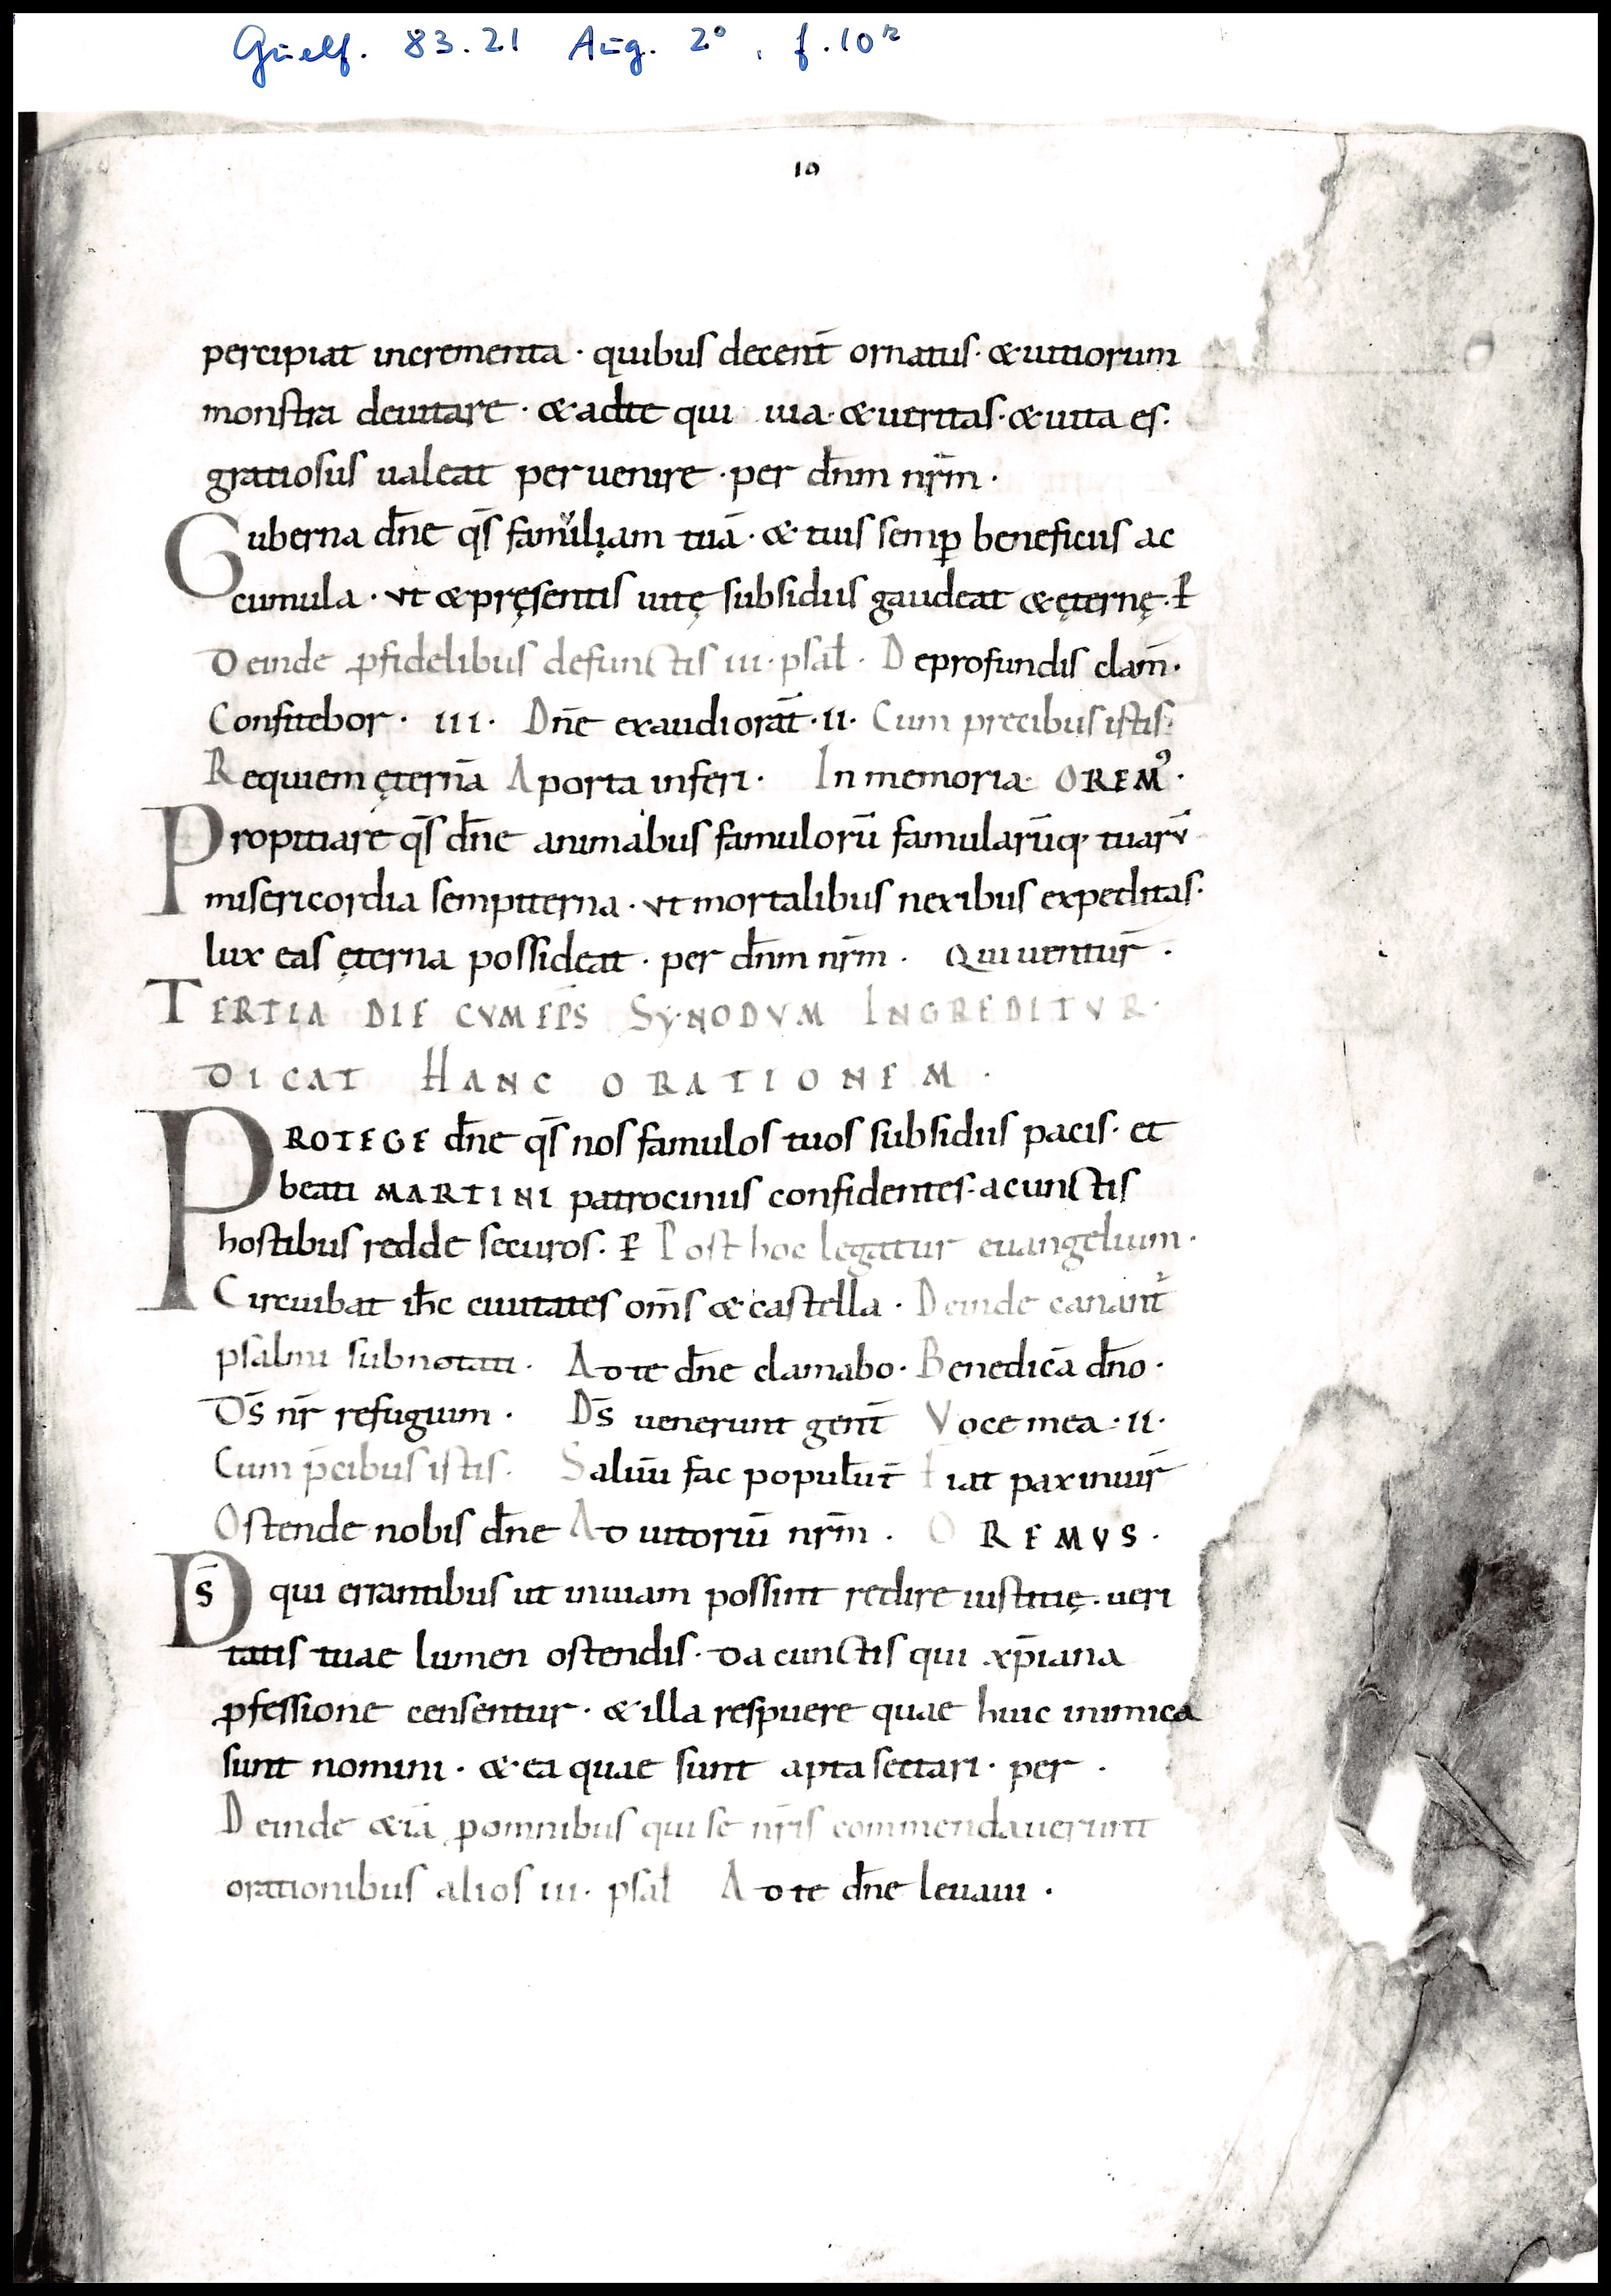 Guelf. 83.21 Aug. 2° , f. 10ʳ
10
percipiat incrementa · quibus decent̄ ornatus · & uitiorum
monstra deuitare · & adte qui uia · & ueritas · & uita es ·
gratiosus ualeat peruenire · per dn̄m nr̄m ·
Guberna dn̄e qs̄ famuliam tuā · & tuis semp̄ beneficiis ac
cumula · vt & pręsentis uitę subsidiis gaudeat & ęternę · P̄
Deinde ꝓfidelibus defunctis iii · psal̄ · Deprofundis clam̄ ·
Confitebor · iii · Dn̄e exaudiorat̄ · ii · Cum precibus istis ·
Requiem ęternā Aporta inferi · In memoria · OREMꝰ ·
Propitiare qs̄ dn̄e animabus famulorū famularūq · tuarv̄
misericordia sempiterna · vt mortalibus nexibus expeditas ·
lux eas ęterna possideat · per dn̄m nr̄m · Qui uentur̄ ·
TERTIA DIE CVM EPS̄ SYNODVM INGREDITVR ·
DICAT HANC ORATIONEM ·
PROTEGE dn̄e qs̄ nos famulos tuos subsidiis pacis · et
beati MARTINI patrociniis confidentes · acunctis
hostibus redde securos · P̄ Post hoc legatur euangelium ·
Circuibat ih̄c ciuitates om̄s & castella · Deinde canant᷑
psalmi subnotati · Adte dn̄e clamabo · Benedicā dn̄o ·
Ds̄ nr̄ refugium · Ds̄ uenerunt gent̄ Voce mea · ii ·
Cum p̄cibus istis · Saluū fac popul̄ut̄ Fiat pax inuir̄
Ostende nobis dn̄e Adiutoriū nr̄m · OREMVS ·
Ds̄ qui errantibus ut inuiam possint redire iustitię · ueri
tatis tuae lumen ostendis · da cunctis qui xp̄iana
ꝓfessione censentur · & illa respuere quae huic inimica
sunt nomini · & ea quae sunt apta sectari · per ·
Deinde &iā ꝓomnibus qui se nr̄is commendauerunt
orationibus alios iii · psal̄ Adte dn̄e leuaui ·